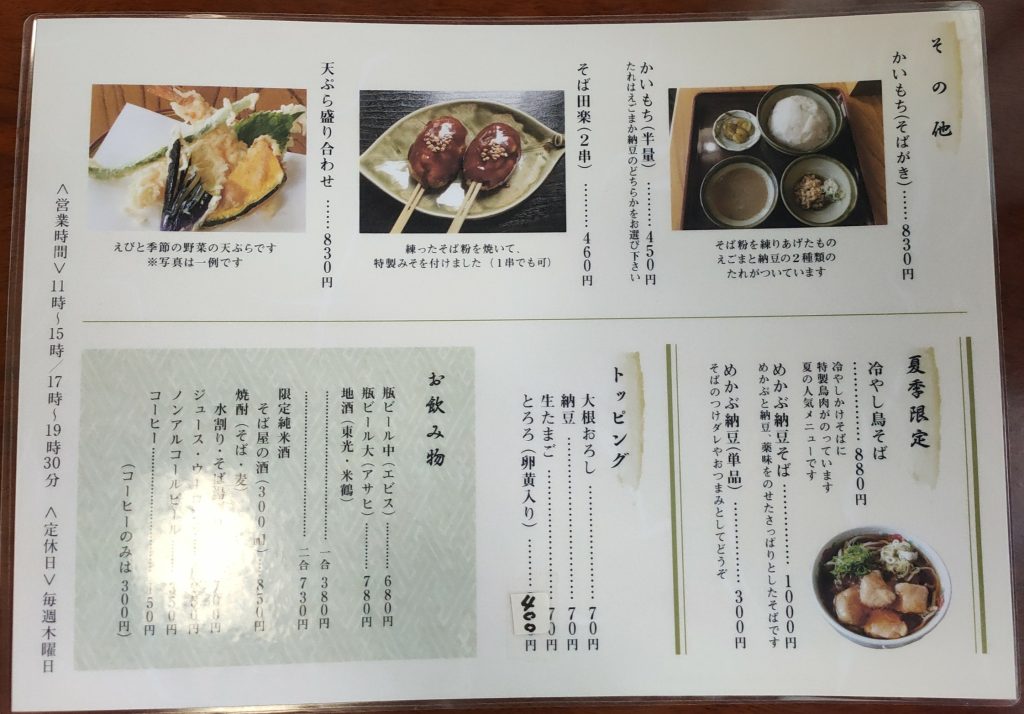 その他
かいもち(そばがき)……830円
そば粉を練りあげたもの
えごまと納豆の2種類の
たれがついています
かいもち(半量)………450円
たれはえごまか納豆のどちらかをお選び下さい
そば田楽(2串)………460円
練ったそば粉を焼いて、
特製みそを付けました(1串でも可)
天ぷら盛り合わせ……830円
えびと季節の野菜の天ぷらです
※写真は一例です
夏季限定
冷やし鳥そば
……………880円
冷やしかけそばに
特製鳥肉がのっています
夏の人気メニューです
めかぶ納豆そば…………1000円
めかぶと納豆、薬味をのせたさっぱりとしたそばです
めかぶ納豆(単品)…………300円
そばのつけダレやおつまみとしてどうぞ
トッピング
大根おろし……………70円
納豆……………………70円
生たまご………………70円
とろろ(卵黄入り)………400円
お飲み物
瓶ビール中(エビス)………680円
瓶ビール大(アサヒ)………780円
地酒(東光・米鶴)
……………一合 380円
……………二合 730円
限定純米酒
そば屋の酒(300ml)……850円
焼酎(そば・麦)
水割り・そば
ジュース・ウー
ノンアルコールビール
コーヒー
(コーヒーのみは300円)
<営業時間>11時~15時/17時~19時30分 <定休日>毎週木曜日